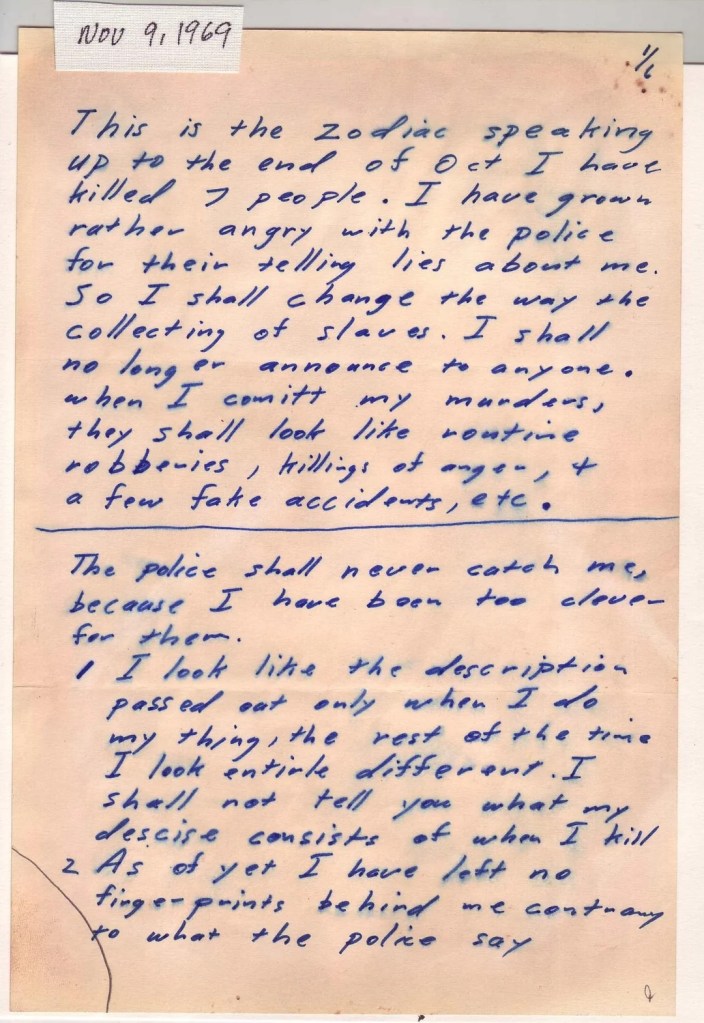 NOV 9, 1969
1/6
This is the zodiac speaking
up to the end of Oct I have
killed 7 people. I have grown
rather angry with the police
for their telling lies about me.
So I shall change the way the
collecting of slaves. I shall
no longer announce to anyone.
when I comitt my murders,
they shall look like routine
robberies, killings of anger, +
a few fake accidents, etc.
The police shall never catch me,
because I have been too clever
for them.
1 I look like the description
passed out only when I do
my thing, the rest of the time
I look entirle different. I
shall not tell you what my
descise consists of when I kill
2 As of yet I have left no
fingerprints behind me contrary
to what the police say